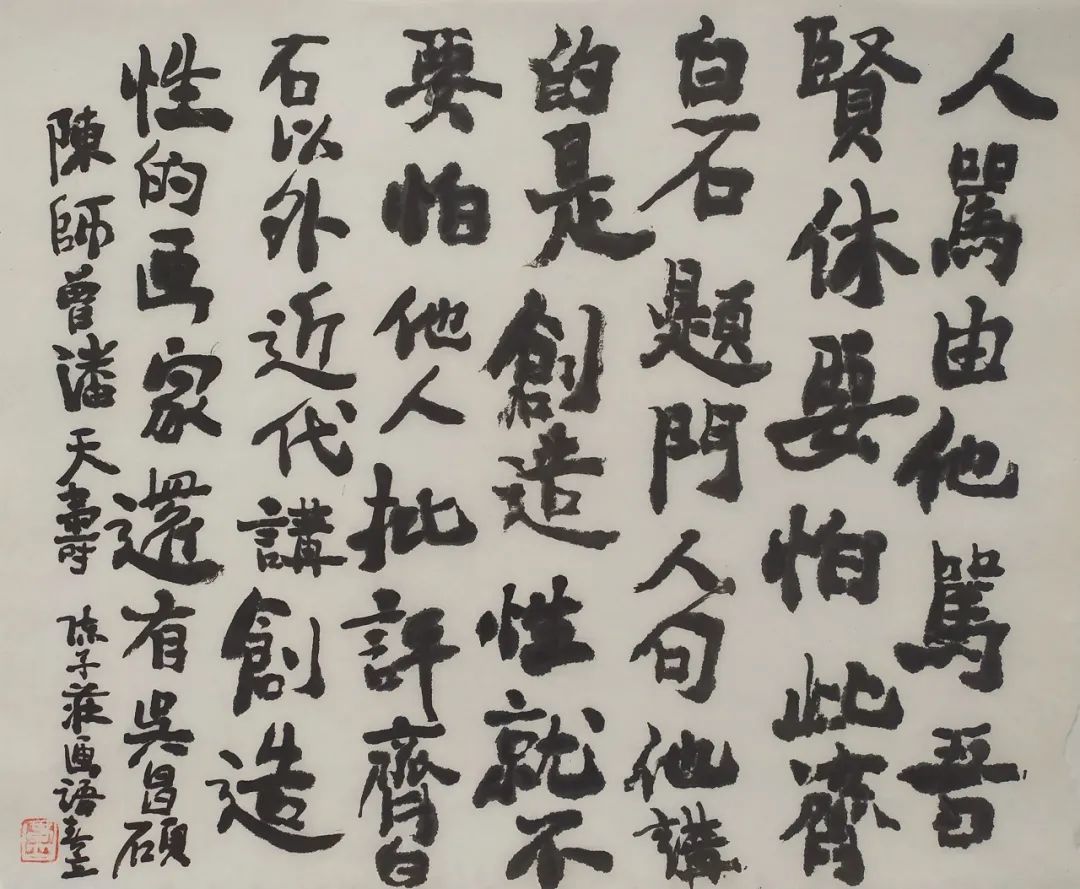 人罵由他罵吾
賢休要怕此齊
白石題門人句他講
的是創造性就不
要怕他人批評齊白
石以外近代講創造
性的画家還有吳昌碩
陳師曾潘天壽 陳子莊画語